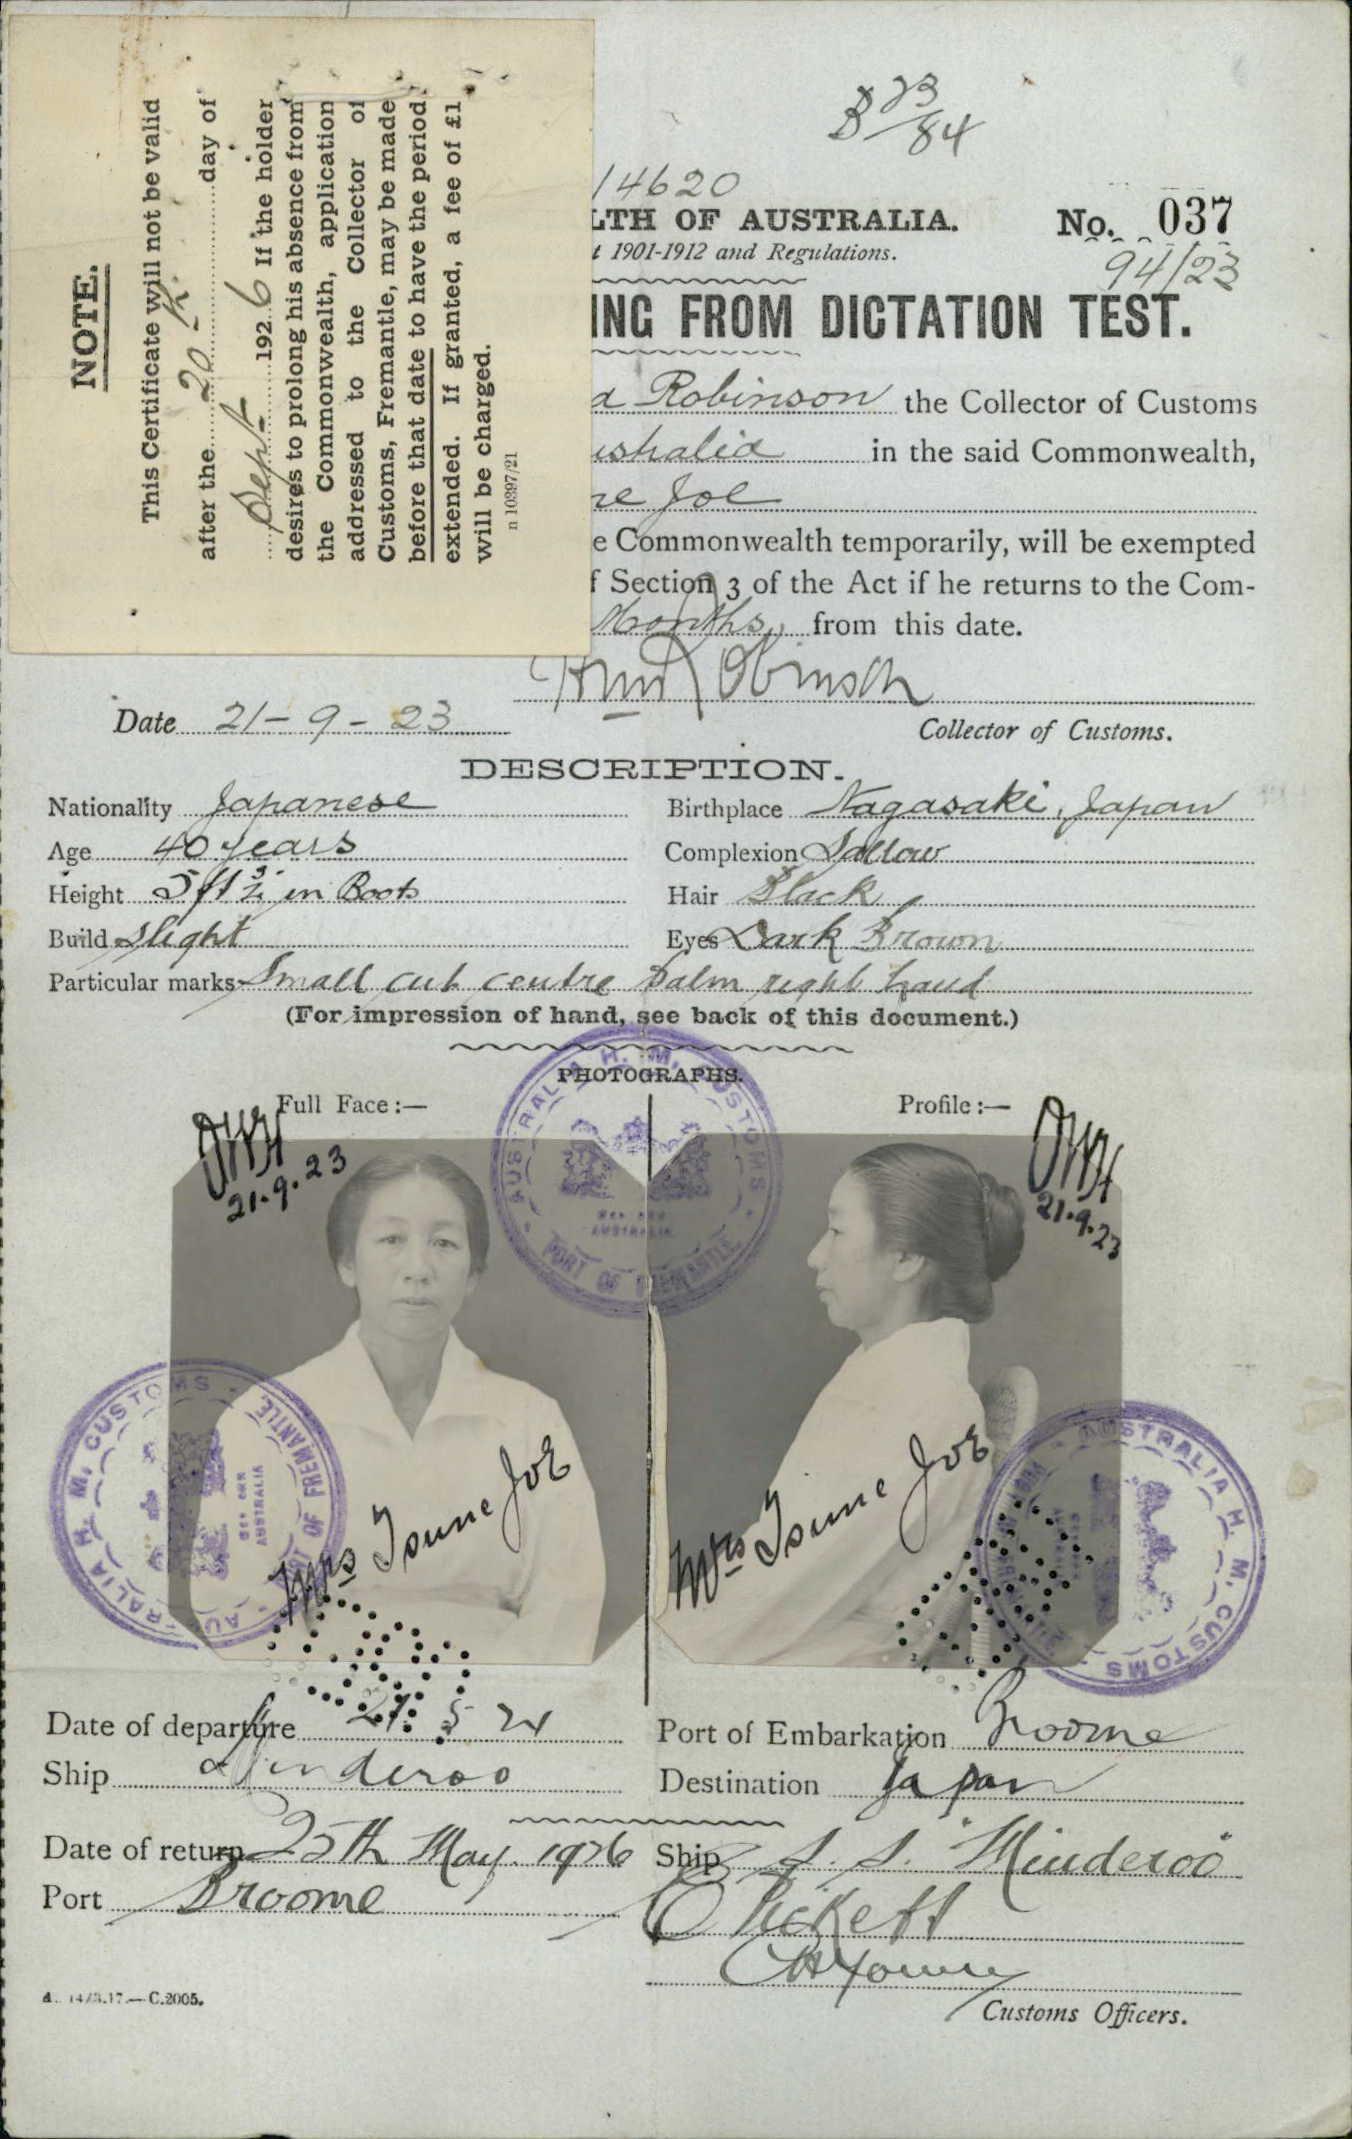 NOTE.
This Certificate will not be valid
after the 20th day of
Sept 1926 If the holder
desires to prolong his absence from
the Commonwealth, application
addressed to the Collector of
Customs, Fremantle, may be made
before that date to have the period
extended. If granted, a fee of £1
will be charged.
n 10397/21
B 23/84
14620
LTH OF AUSTRALIA.
No. 037
t 1901-1912 and Regulations.
94/23
ING FROM DICTATION TEST.
d Robinson the Collector of Customs
ustralia in the said Commonwealth,
ne Joe
e Commonwealth temporarily, will be exempted
f Section 3 of the Act if he returns to the Com-
Months from this date.
Robinson
Date 21-9-23
Collector of Customs.
DESCRIPTION.
Nationality Japanese
Birthplace Nagasaki, Japan
Age 40 years
Complexion Sallow
Height 5 ft ¾ in Boots
Hair Black
Build Slight
Eyes Dark Brown
Particular marks Small cut centre palm right hand
(For impression of hand, see back of this document.)
PHOTOGRAPHS.
Full Face:—
Profile:—
21.9.23
21.9.23
AUSTRALIA H. M. CUSTOMS
AUSTRALIA
PORT OF FREMANTLE
AUSTRALIA H. M. CUSTOMS
AUSTRALIA
PORT OF FREMANTLE
AUSTRALIA H. M. CUSTOMS
Mrs Tsune Joe
Mrs Tsune Joe
Date of departure 21. 5 24
Port of Embarkation Broome
Ship Minderoo
Destination Japan
Date of return 25th May 1926
Ship S. S. "Minderoo"
Port Broome
Customs Officers.
C.2005.